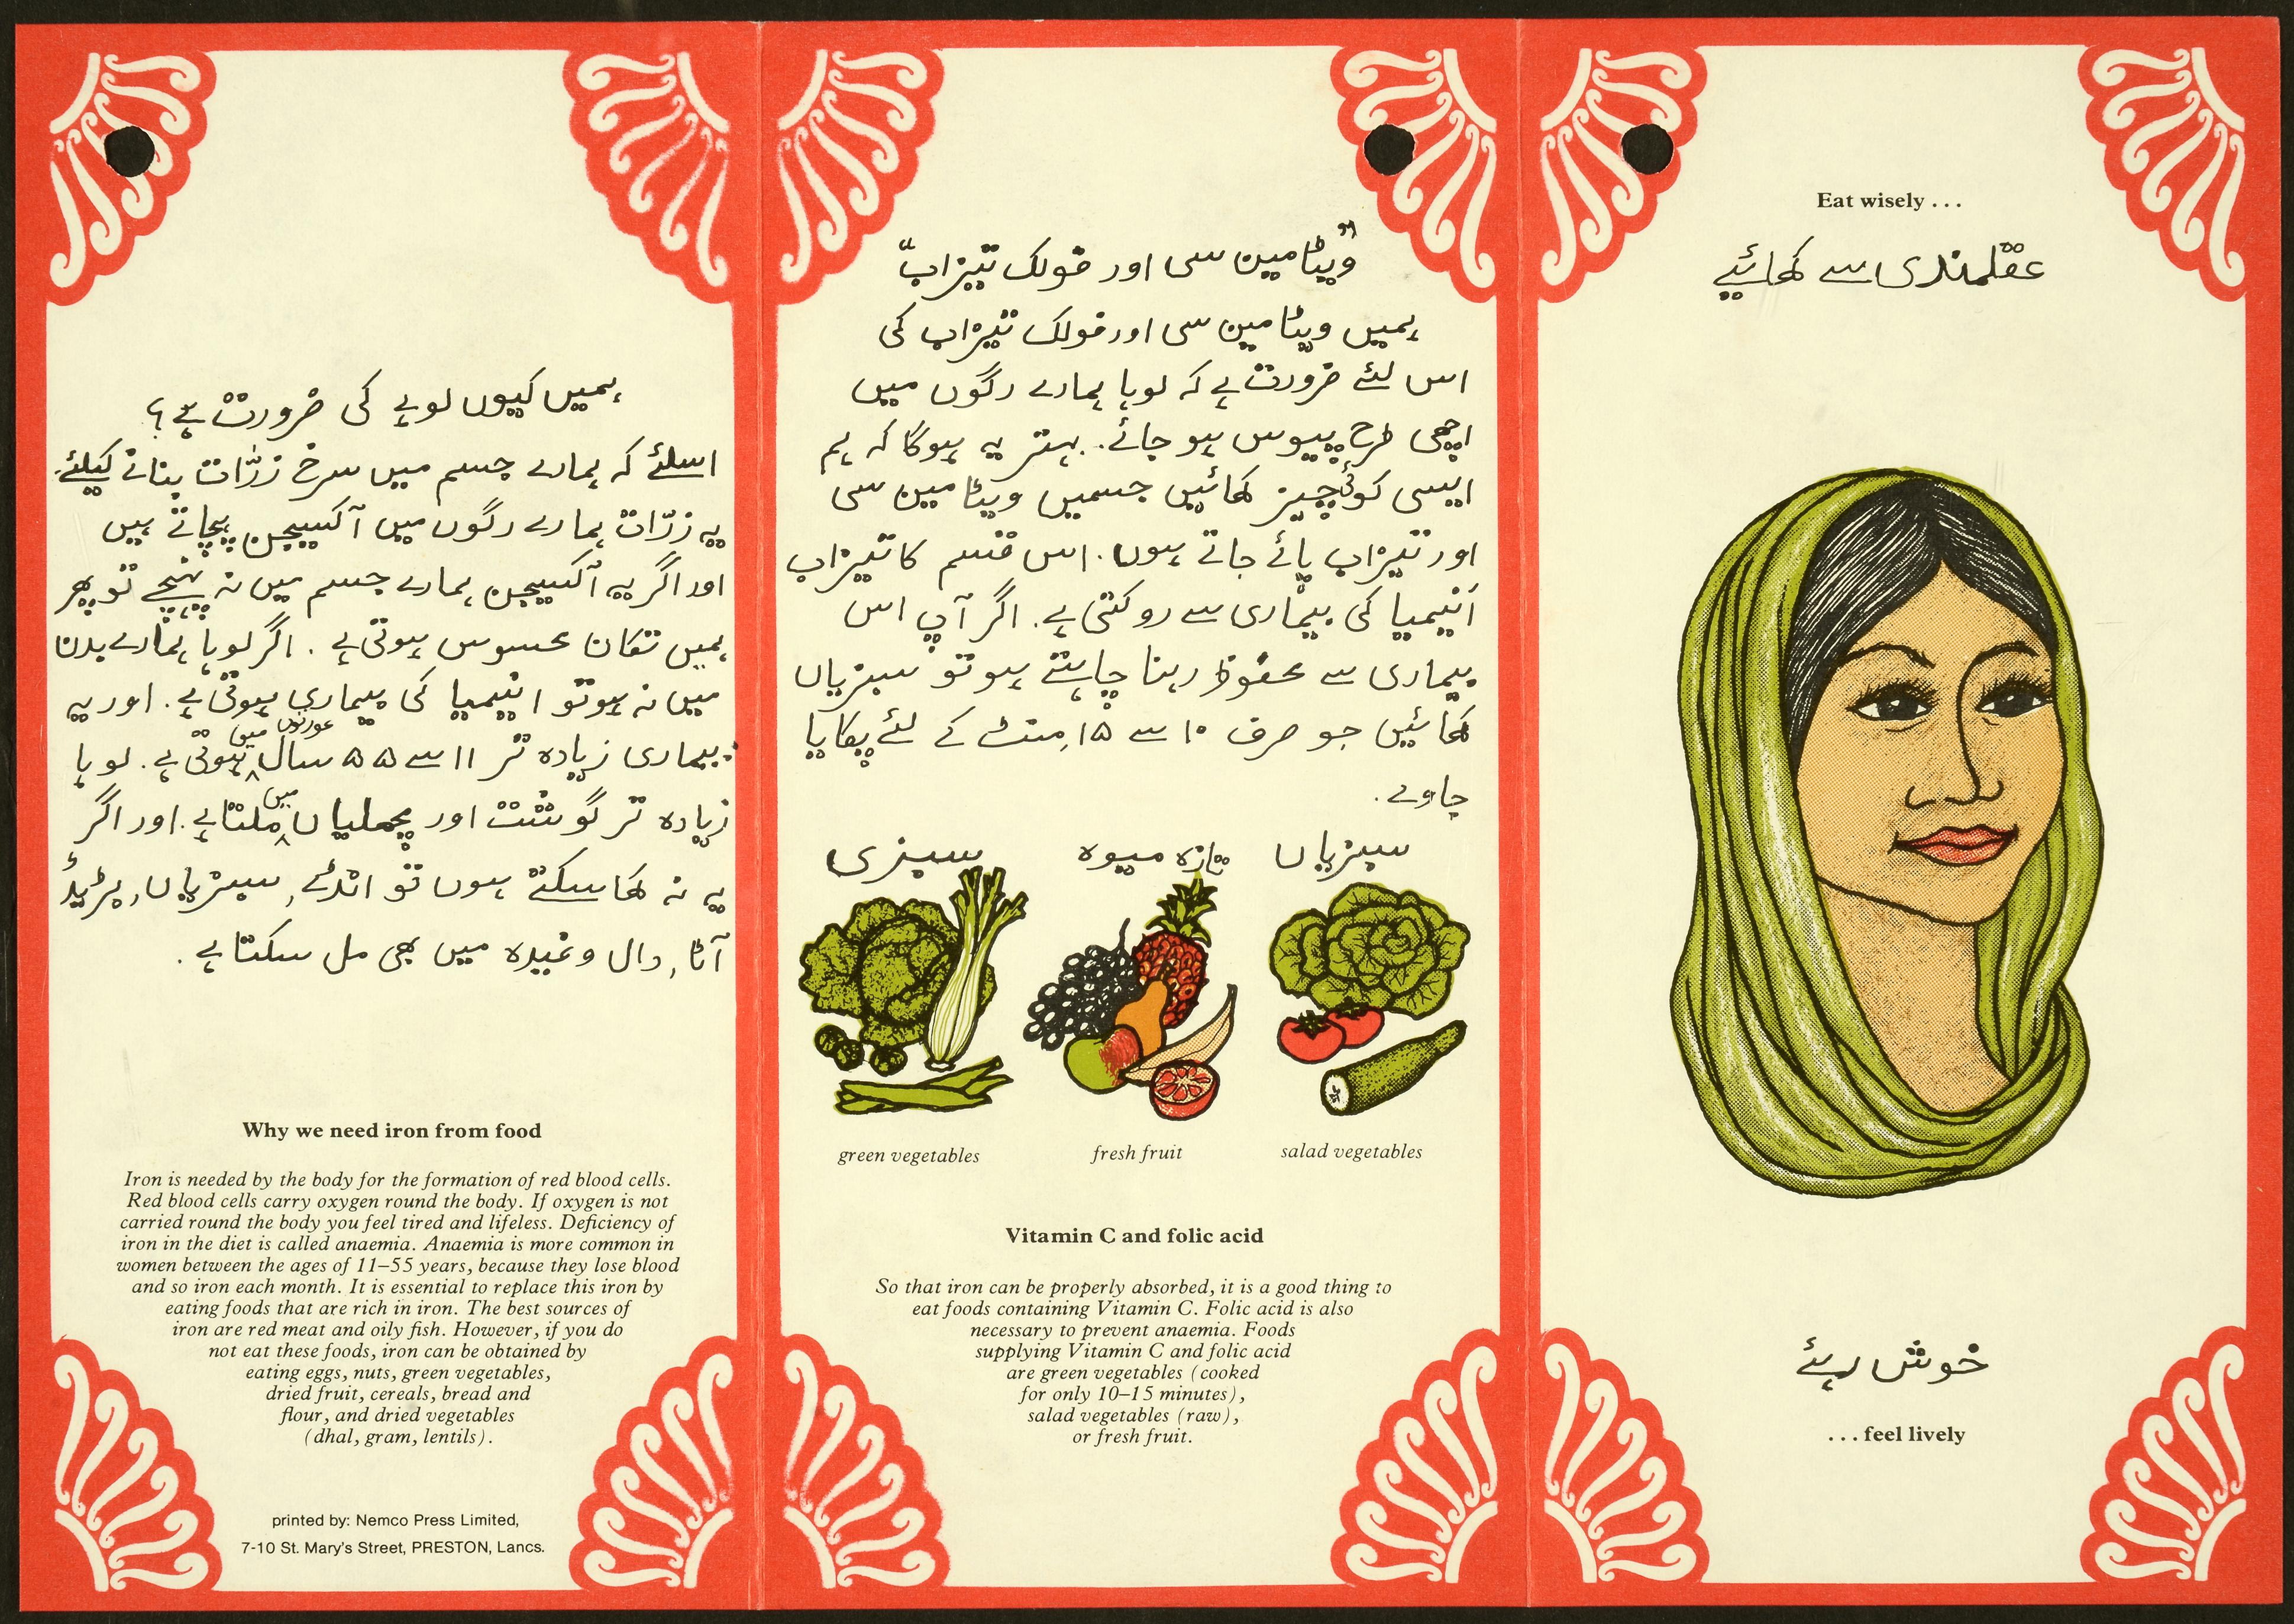 ہمیں کیوں لوہے کی ضرورت ہے؟
اسلئے کہ ہمارے جسم میں سرخ زرّات بنانے کیلئے
یہ زرّات ہمارے رگوں میں آکسیجن پہچاتے ہیں
اور اگر یہ آکسیجن ہمارے جسم میں نہ پہنچے تو پھر
ہمیں تکان محسوس ہوتی ہے . اگر لوہا ہمارے بدن
میں نہ ہو تو انیمیا کی بیماری ہوتی ہے . اور یہ
بیماری زیادہ تر ۱۱ سے ۵۵ سال عورتوں میں ہوتی ہے . لوہا
زیادہ تر گوشت اور مچھلیاں میں ملتا ہے . اور اگر
یہ نہ کھا سکتے ہوں تو انڈے, سبزیاں, بڑیڈ
آٹا, دال وغیرہ میں بھی مل سکتا ہے .
Why we need iron from food
Iron is needed by the body for the formation of red blood cells.
Red blood cells carry oxygen round the body. If oxygen is not
carried round the body you feel tired and lifeless. Deficiency of
iron in the diet is called anaemia. Anaemia is more common in
women between the ages of 11–55 years, because they lose blood
and so iron each month. It is essential to replace this iron by
eating foods that are rich in iron. The best sources of
iron are red meat and oily fish. However, if you do
not eat these foods, iron can be obtained by
eating eggs, nuts, green vegetables,
dried fruit, cereals, bread and
flour, and dried vegetables
(dhal, gram, lentils).
printed by: Nemco Press Limited,
7-10 St. Mary's Street, PRESTON, Lancs.
"ویٹامین سی اور فولک تیزاب"
ہمیں ویٹامین سی اور فولک تیزاب کی
اس لئے ضرورت ہے کہ لوہا ہمارے رگوں میں
اچھی طرح پیوس ہو جائے. بہتر یہ ہوگا کہ ہم
ایسی کوئی چیز کھائیں جسمیں ویٹامین سی
اور تیزاب پائے جاتے ہوں . اس قسم کا تیزاب
انیمیا کی بیماری سے روکتی ہے. اگر آپ اس
بیماری سے محفوظ رہنا چاہتے ہو تو سبزیاں
کھائیں جو صرف ۱۰ سے ۱۵ منٹ کے لئے پکایا
جاوے .
سبزی تازہ میوہ سبزیاں
green vegetables fresh fruit salad vegetables
Vitamin C and folic acid
So that iron can be properly absorbed, it is a good thing to
eat foods containing Vitamin C. Folic acid is also
necessary to prevent anaemia. Foods
supplying Vitamin C and folic acid
are green vegetables (cooked
for only 10–15 minutes),
salad vegetables (raw),
or fresh fruit.
Eat wisely . . .
عقلمندی سے کھائیے
خوش رہئے
. . . feel lively